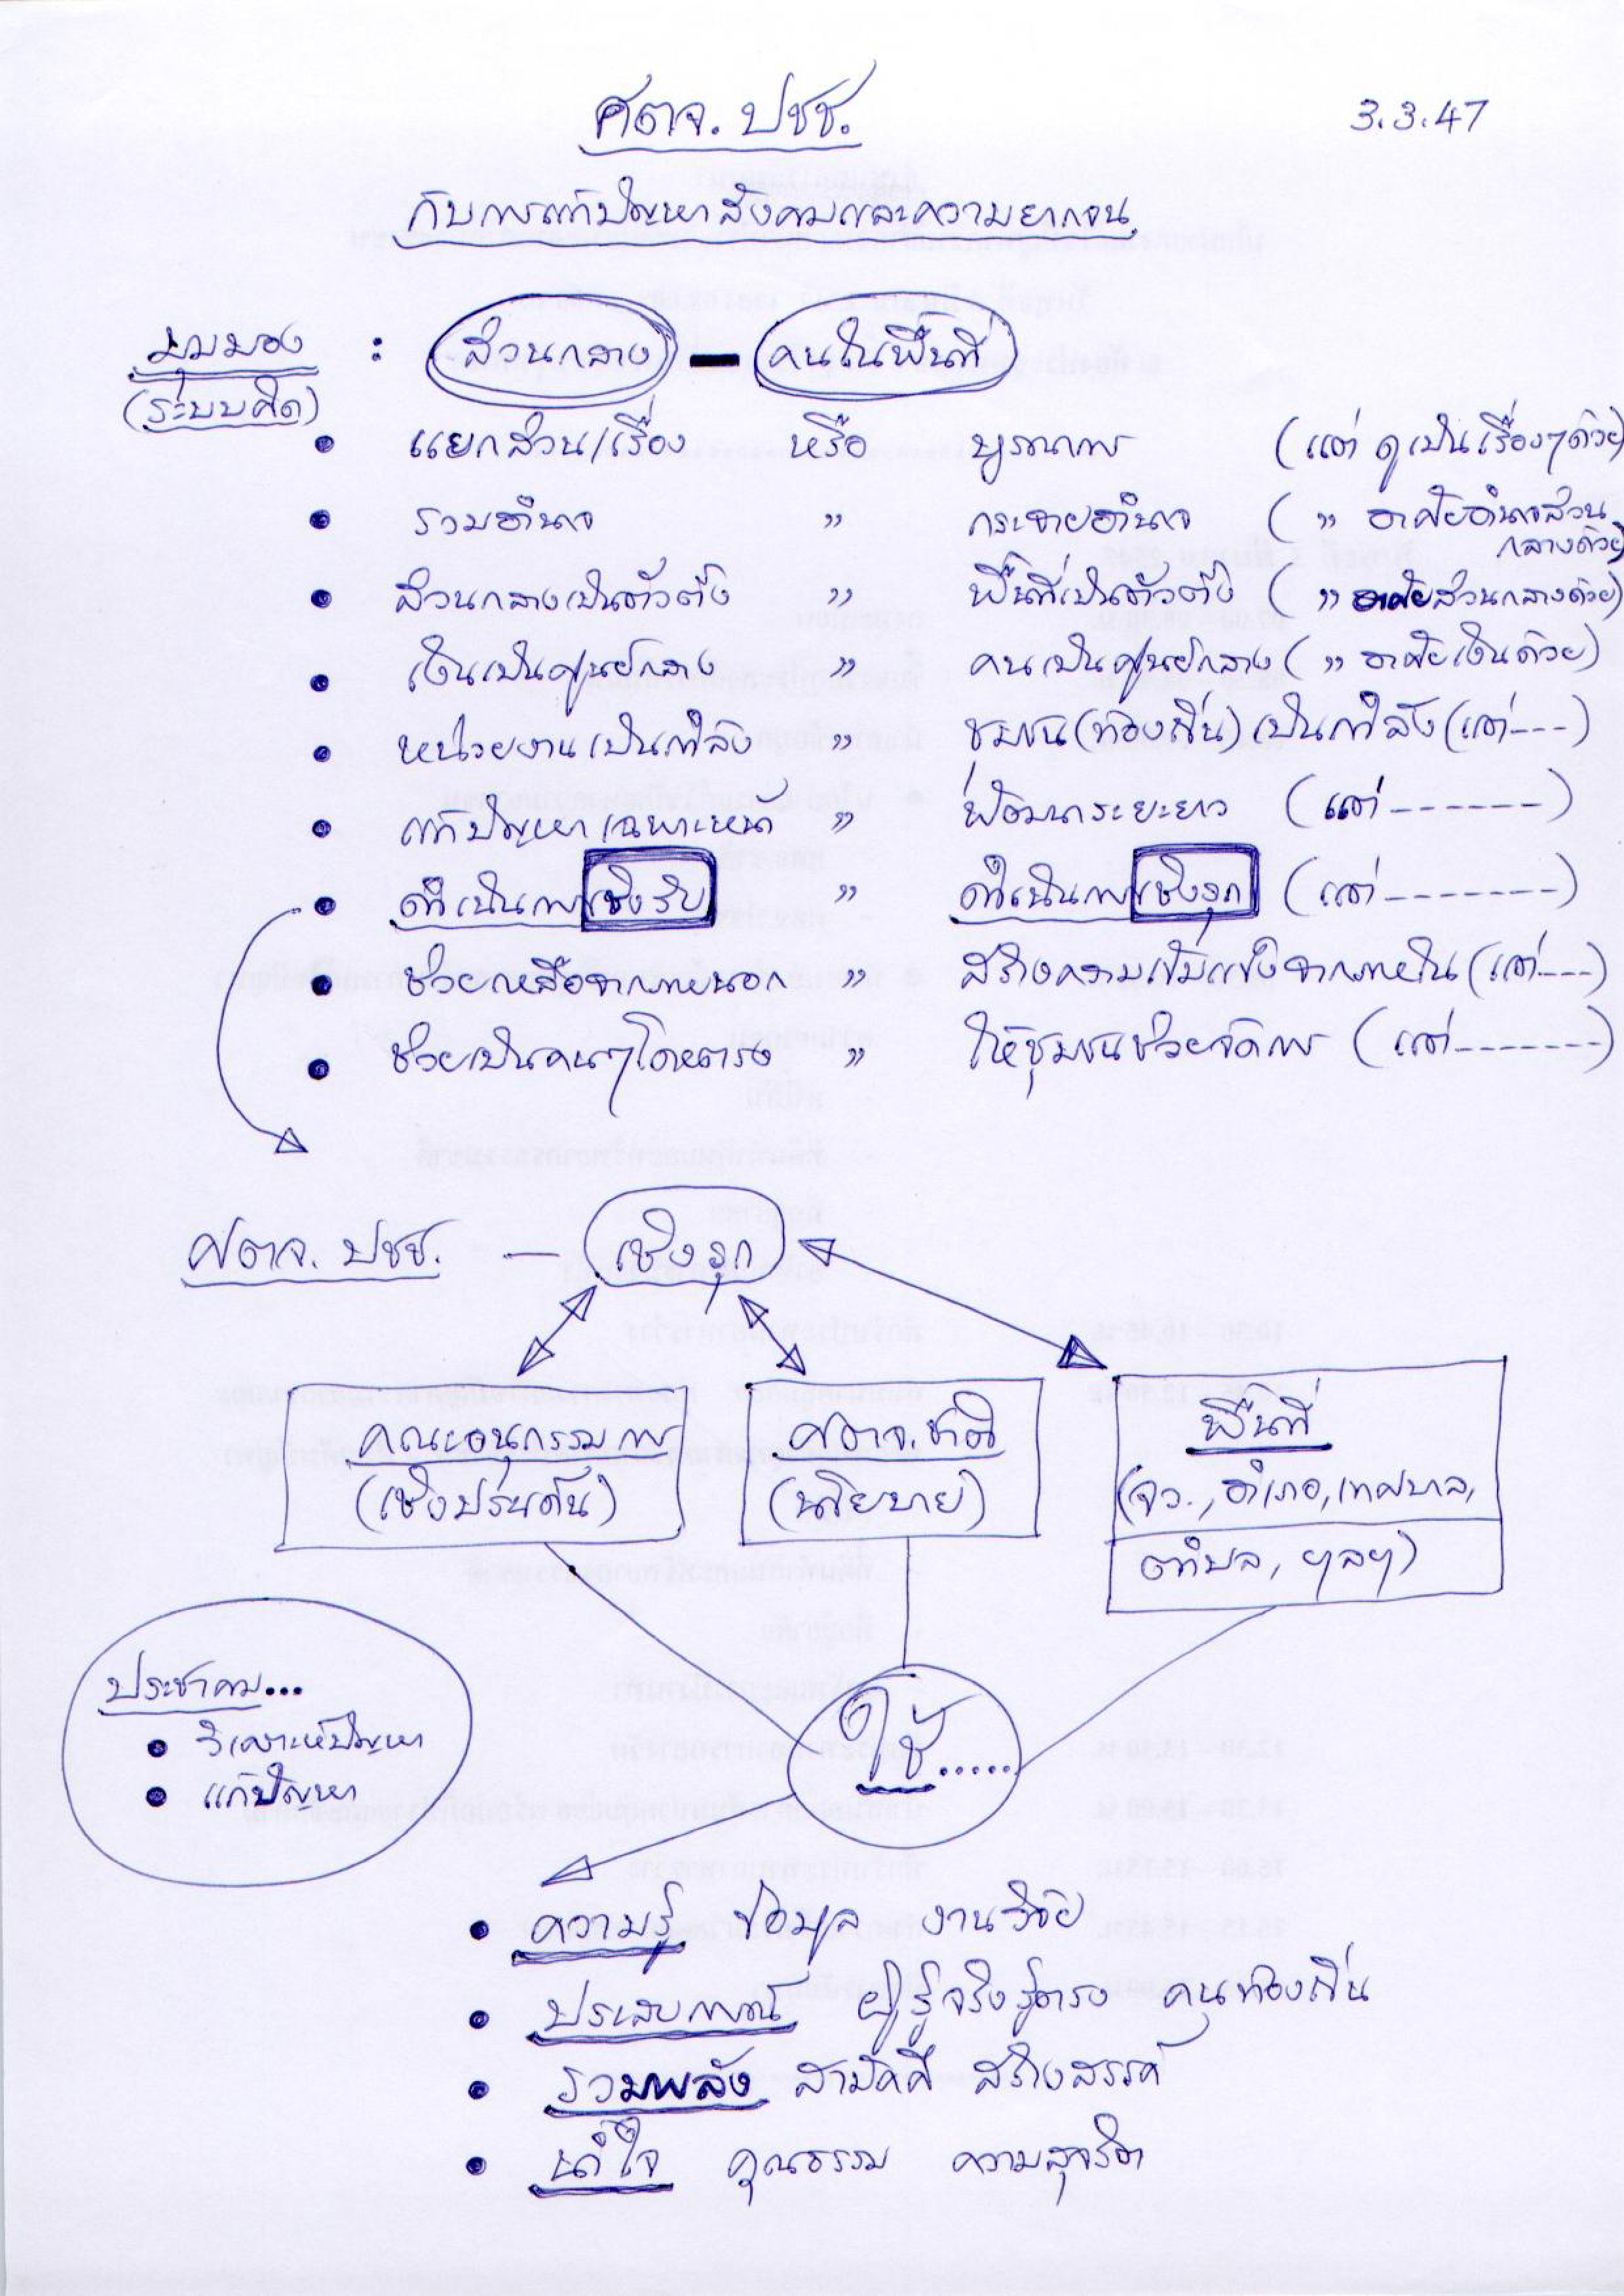 ศตจ. ปชช.
3.3.47
กับการแก้ปัญหาสังคมและความยากจน
มุมมอง : ส่วนกลาง — คนในพื้นที่
(ระบบคิด)
• แยกส่วน/เรื่อง หรือ บูรณาการ (แต่ ดูเป็นเรื่องๆด้วย)
• รวมอำนาจ " กระจายอำนาจ ( " อาศัยอำนาจส่วน
กลางด้วย)
• ส่วนกลางเป็นตัวตั้ง " พื้นที่เป็นตัวตั้ง ( " อาศัยส่วนกลางด้วย)
• เงินเป็นศูนย์กลาง " คนเป็นศูนย์กลาง ( " อาศัยเงินด้วย)
• หน่วยงานเป็นกำลัง " ชุมชน(ท้องถิ่น)เป็นกำลัง (แต่---)
• แก้ปัญหาเฉพาะหน้า " พัฒนาระยะยาว (แต่------)
• ดำเนินการเชิงรับ " ดำเนินการเชิงรุก (แต่-------)
• ช่วยเหลือจากภายนอก " สร้างความเข้มแข็งจากภายใน (แต่---)
• ช่วยเป็นคนๆโดยตรง " ให้ชุมชนช่วยจัดการ (แต่-------)
ศตจ. ปชช. — เชิงรุก
คณะอนุกรรมการ
(เชิงประเด็น)
ศตจ.ชาติ
(นโยบาย)
พื้นที่
(จว., อำเภอ, เทศบาล,
ตำบล, ฯลฯ)
ประชาคม...
• วิเคราะห์ปัญหา
• แก้ปัญหา
ใช้......
• ความรู้ ข้อมูล งานวิจัย
• ประสบการณ์ ผู้รู้จริงรู้ตรง คนท้องถิ่น
• รวมพลัง สามัคคี สร้างสรรค์
• น้ำใจ คุณธรรม ความสุจริต